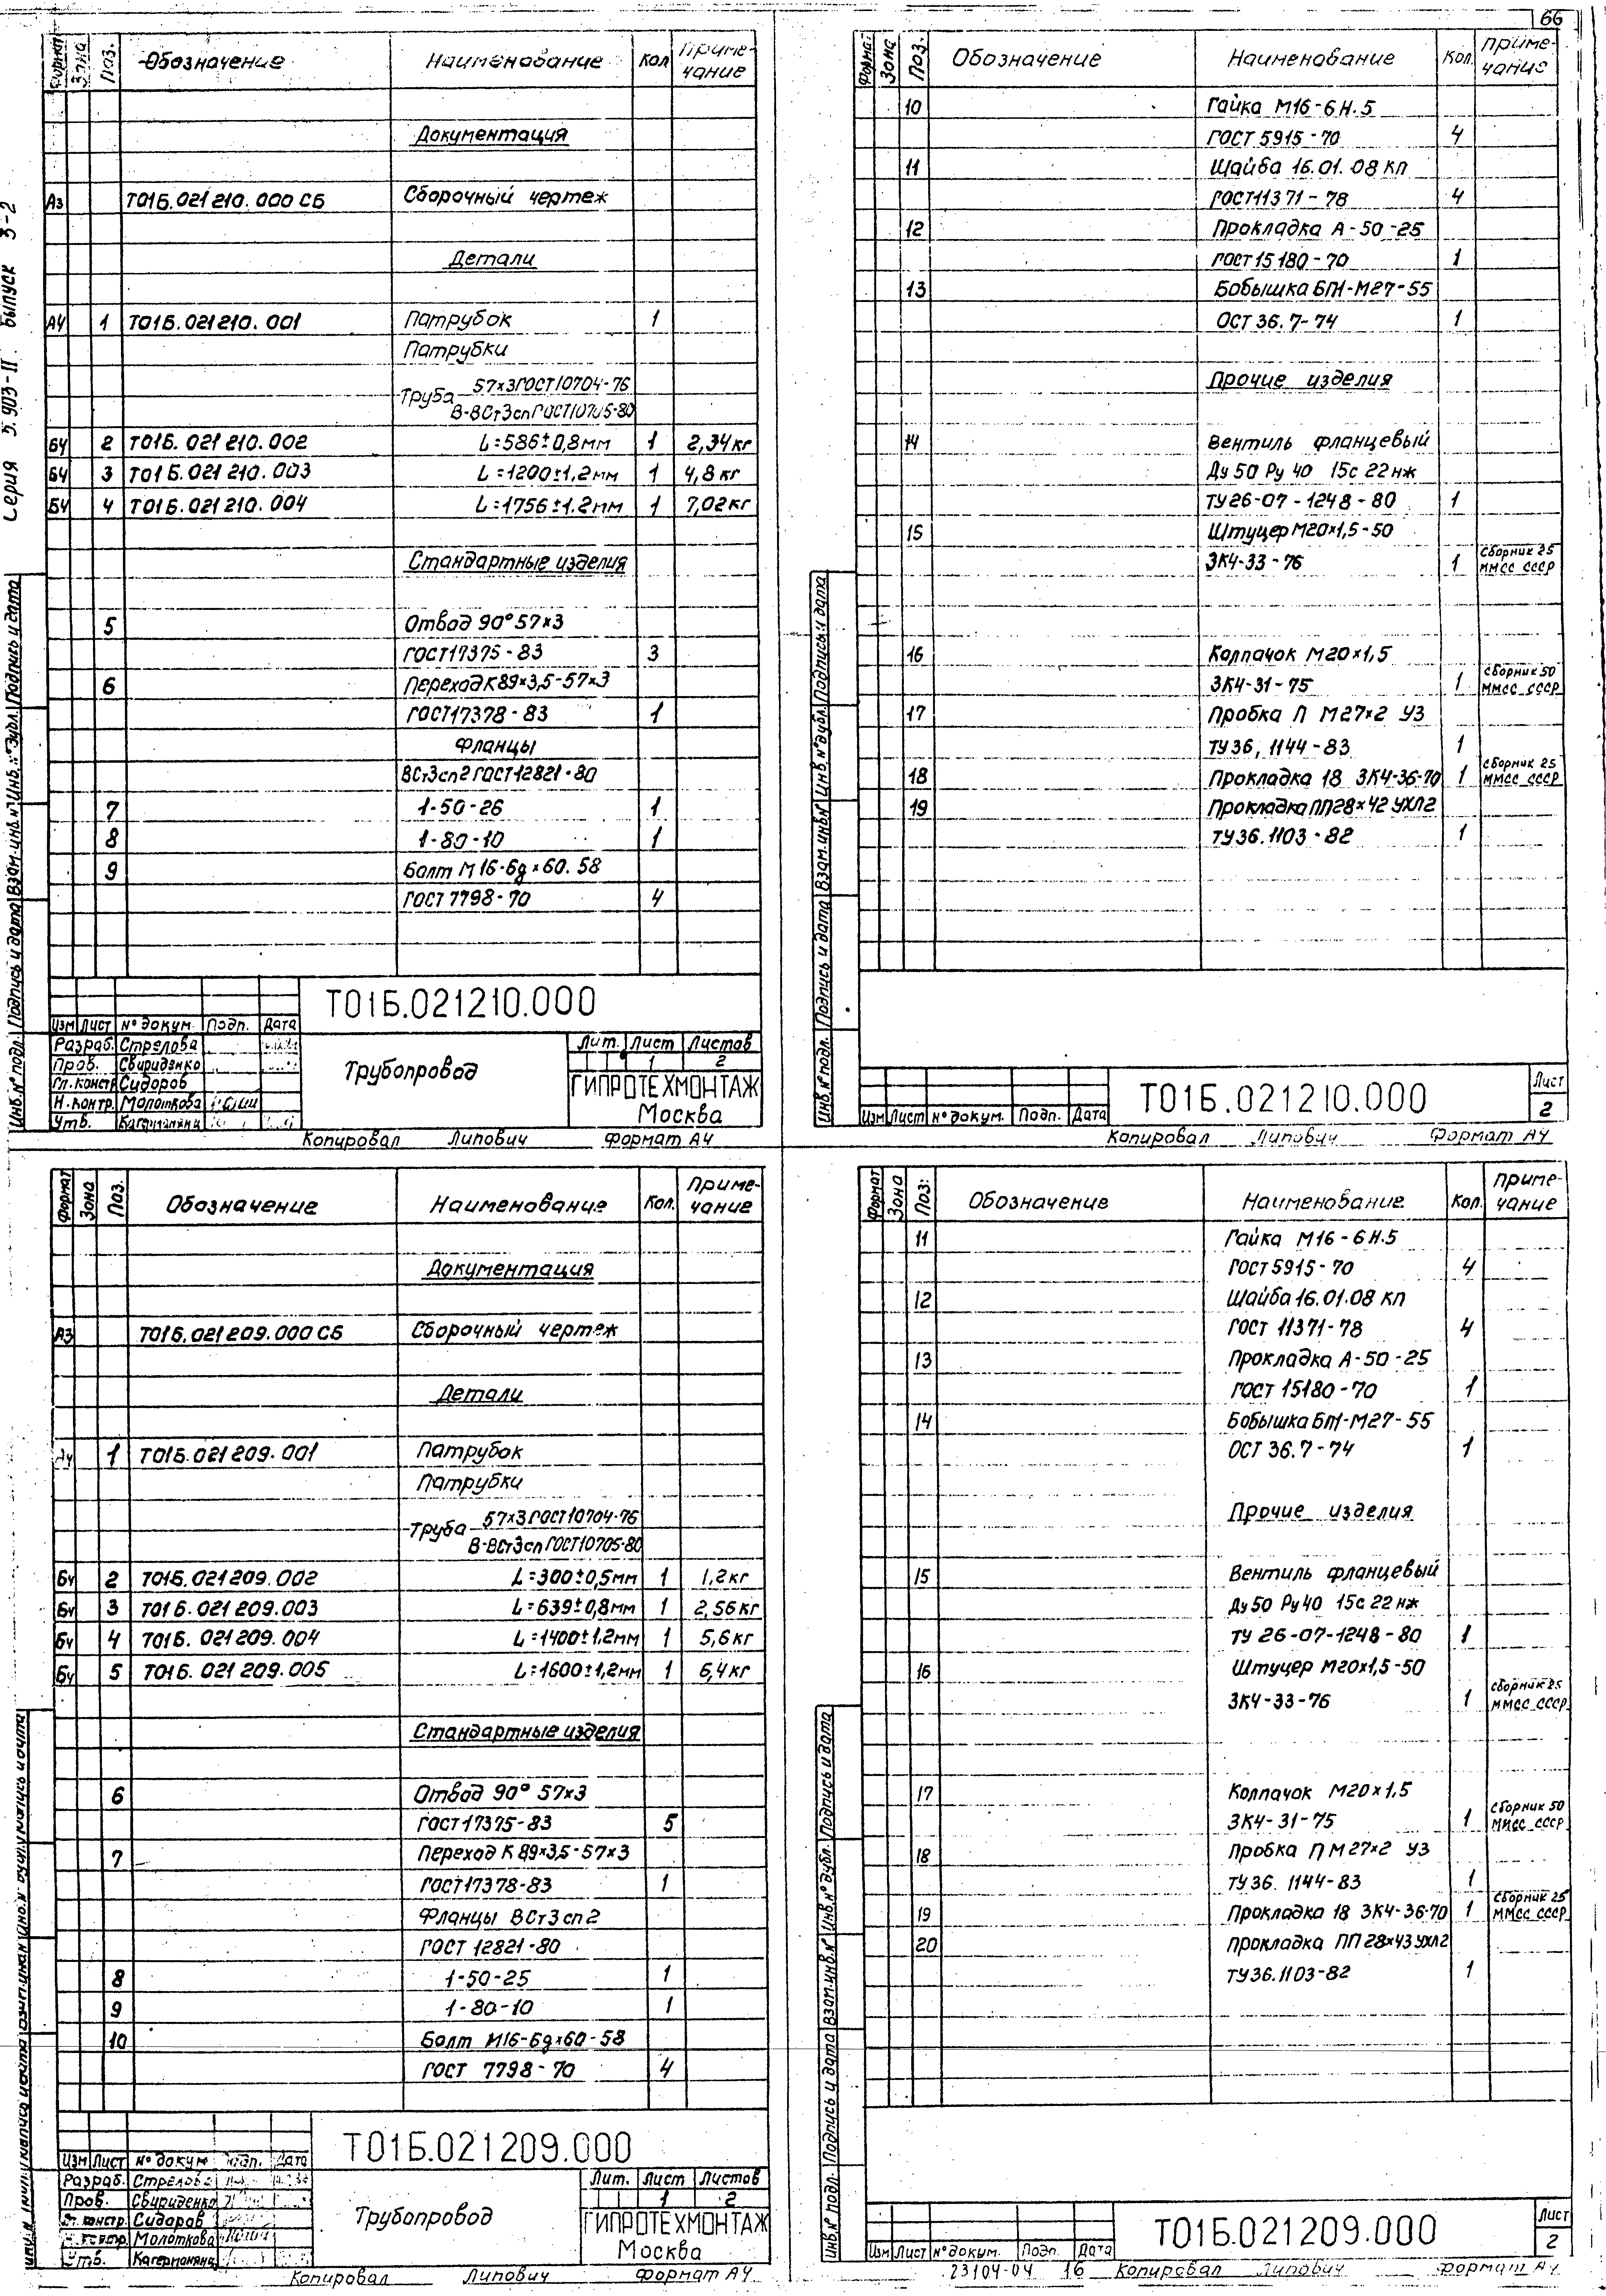 66
Серия 5.903-11. Выпуск 3-2
Формат Зона Поз. Обозначение Наименование Кол Примечание
Документация
А3 Т01Б.021210.000 СБ Сборочный чертеж
Детали
А4 1 Т01Б.021210.001 Патрубок 1
Патрубки
Труба 57×3 ГОСТ10704-76
В-ВСт3сп ГОСТ10705-80
БЧ 2 Т01Б.021210.002 L=586±0,8мм 1 2,34кг
БЧ 3 Т01Б.021210.003 L=1200±1,2мм 1 4,8кг
БЧ 4 Т01Б.021210.004 L=1756±1.2мм 1 7,02кг
Стандартные изделия
5 Отвод 90°57×3
ГОСТ17375-83 3
6 Переход К89×3,5-57×3
ГОСТ17378-83 1
Фланцы
ВСт3сп2 ГОСТ12821-80
7 1-50-26 1
8 1-80-10 1
9 Болт М16-6g×60.58
ГОСТ 7798-70 4
Т01Б.021210.000
Изм Лист № докум. Подп. Дата
Разраб. Стрелова
Пров. Свириденко
Гл.констр Сидоров
Н.контр. Молоткова
Утв.
Трубопровод
Лит. Лист Листов
1 2
ГИПРОТЕХМОНТАЖ
Москва
Инв.№ подл. Подпись и дата Взам.инв.№ Инв.№ дубл. Подпись и дата
Копировал Липович Формат А4
Формат Зона Поз. Обозначение Наименование Кол. Примечание
10 Гайка М16-6Н.5
ГОСТ 5915-70 4
11 Шайба 16.01.08 кп
ГОСТ11371-78 4
12 Прокладка А-50-25
ГОСТ 15180-70 1
13 Бобышка БП1-М27-55
ОСТ 36.7-74 1
Прочие изделия
14 Вентиль фланцевый
Ду 50 Ру 40 15с 22 нж
ТУ 26-07-1248-80 1
15 Штуцер М20×1,5-50
ЗК4-33-76 1 Сборник 25 ММСС СССР
16 Колпачок М20×1,5
ЗК4-31-75 1 Сборник 50 ММСС СССР
17 Пробка П М27×2 У3
ТУ 36, 1144-83 1
18 Прокладка 18 ЗК4-36-70 1 Сборник 25 ММСС СССР
19 Прокладка ПП28×42 УХЛ2
ТУ 36.1103-82 1
Инв.№ подл. Подпись и дата Взам.инв.№ Инв.№ дубл. Подпись и дата
Изм Лист № докум. Подп. Дата
Т01Б.021210.000
Лист
2
Копировал Липович Формат А4
Формат Зона Поз. Обозначение Наименование Кол. Примечание
Документация
А3 Т01Б.021209.000 СБ Сборочный чертеж
Детали
А4 1 Т01Б.021209.001 Патрубок
Патрубки
Труба 57×3 ГОСТ10704-76
В-ВСт3сп ГОСТ10705-80
БЧ 2 Т01Б.021209.002 L=300±0,5мм 1 1,2кг
БЧ 3 Т01Б.021209.003 L=639±0,8мм 1 2,56кг
БЧ 4 Т01Б.021209.004 L=1400±1,2мм 1 5,6кг
БЧ 5 Т01Б.021209.005 L=1600±1,2мм 1 6,4кг
Стандартные изделия
6 Отвод 90° 57×3
ГОСТ17375-83 5
7 Переход К 89×3,5-57×3
ГОСТ17378-83 1
Фланцы ВСт3сп2
ГОСТ 12821-80
8 1-50-25 1
9 1-80-10 1
10 Болт М16-6g×60-58
ГОСТ 7798-70 4
Т01Б.021209.000
Изм Лист № докум Подп. Дата
Разраб. Стрелова
Пров. Свириденко
Гл.констр. Сидоров
Молоткова
Утв.
Трубопровод
Лит. Лист Листов
1 2
ГИПРОТЕХМОНТАЖ
Москва
Копировал Липович Формат А4
Формат Зона Поз. Обозначение Наименование Кол. Примечание
11 Гайка М16-6Н.5
ГОСТ 5915-70 4
12 Шайба 16.01.08 кп
ГОСТ 11371-78 4
13 Прокладка А-50-25
ГОСТ 15180-70 1
14 Бобышка БП1-М27-55
ОСТ 36.7-74 1
Прочие изделия
15 Вентиль фланцевый
Ду 50 Ру 40 15с 22 нж
ТУ 26-07-1248-80 1
16 Штуцер М20×1,5-50
ЗК4-33-76 1 Сборник 25 ММСС СССР
17 Колпачок М20×1,5
ЗК4-31-75 1 Сборник 50 ММСС СССР
18 Пробка П М27×2 У3
ТУ 36. 1144-83 1
19 Прокладка 18 ЗК4-36-70 1 Сборник 25 ММСС СССР
20 Прокладка ПП 28×43 УХЛ2
ТУ 36.1103-82 1
Инв.№ подл. Подпись и дата Взам.инв.№ Инв.№ дубл. Подпись и дата
Изм Лист № докум. Подп. Дата
Т01Б.021209.000
Лист
2
23104-04 16 Копировал Липович Формат А4